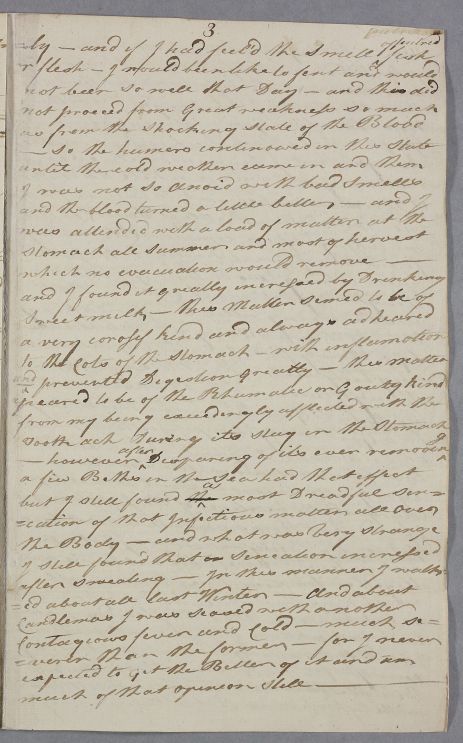 3
ly — and if I had feel'd the Smell of putred fish
or flesh — I would been like to fent and would
not been so well that Day — and this did
not proceed from Great weakness so much
as from the Shocking State of the Blood
— so the humers continowed in this State
until the cold weather came in and then
I was not so anoid with bad Smells
and the blood turned a little better, — and I
was attended with a load of matter at the
Stomach all Summer and most of hervest
which no evacuation would remove —
and I found it greatly incresed by Drinking
Sweet milk, — this Matter Semed to be of
a very corosif kind and always adheared
to the Cots of the Stomach — with inflamation
and prevented Digestion Greatly — this matter
peared to be of the Rhumatic or Gouty kind
from my being exceedingly affected with the
Tooth ach During its stay in the Stomach
— however after Disparing of its ever removing
a few Beths in the Sea had that effect
but I still found as most Dreadful Sen=
=cation of that Infectious matter all over
the Body — and what was very strange
I still found that Sencation incressed
after Swealing — In this manner I walk=
=ed about all last Winter — and about
Candlemas I was seased with another
Contagious fever and Cold — much se=
=verer than the former — for I never
expected to get the Better of it and am
much of that openion Still —